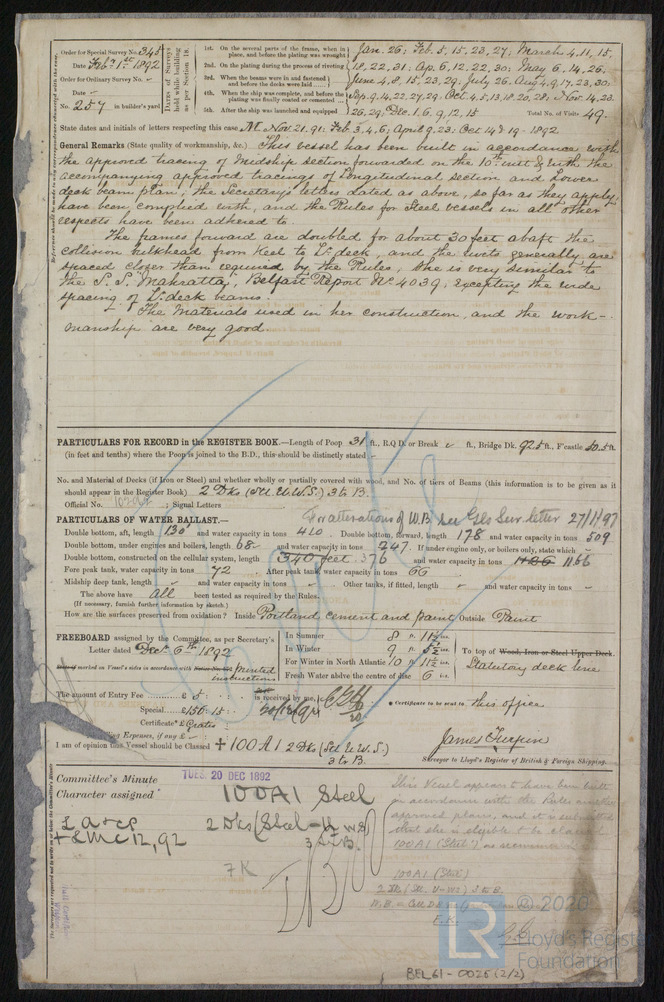 Order for Special Survey No. 348
Date Feb 1st 1892
Order for Ordinary Survey No. -
Date -
No. 257 in builder's yard
Dates of Surveys held while building as per Section 18.
1st. On the several parts of the frame, when in place, and before the plating was wrought
2nd. On the plating during the process of riveting
3rd. When the beams were in and fastened and before the decks were laid
4th. When the ship was complete, and before the plating was finally coated or cemented
5th. After the ship was launched and equipped
Jan. 26; Feb. 5, 15, 23, 27; March 4, 11, 15,
18, 22, 31; Ap. 6, 12, 22, 30; May 6, 14, 26;
June 4, 8, 15, 23, 29; July 26. Aug 4, 9, 17, 23, 30;
Sep. 9, 14, 22, 27, 29. Oct. 4, 5, 13, 18, 20, 28; Nov. 14, 23.
26, 29; Dec. 1, 6, 9, 12, 15
Total No. of Visits 49.
State dates and initials of letters respecting this case M. Nov. 21. 91; Feb. 3, 4, 6; April 9, 23; Oct 14 & 19 - 1892
General Remarks (State quality of workmanship, &c.) This vessel has been built in accordance with
the approved tracing of Midship section forwarded on the 10th inst & with the
accompanying approved tracings of Longitudinal section and Lower
deck beam plan; the Secretary's letters dated as above, so far as they apply,
have been complied with, and the Rules for Steel vessels in all other
respects have been adhered to.
The frames forward are doubled for about 30 feet abaft the
collision bulkhead from Keel to Lr. deck, and the rivets generally are
spaced closer than required by the Rules; She is very similar to
the S.S. Mahratta, Belfast Report No. 4039, excepting the wide
spacing of Lr. deck beams.
The Materials used in her construction, and the work-
manship are very good.
PARTICULARS FOR RECORD in the REGISTER BOOK.—Length of Poop 31 ft., R.Q.D. or Break - ft., Bridge Dk. 92.5 ft., F'castle 40.5 ft.
(in feet and tenths) where the Poop is joined to the B.D., this should be distinctly stated -
No. and Material of Decks (if Iron or Steel) and whether wholly or partially covered with wood, and No. of tiers of Beams (this information is to be given as it
should appear in the Register Book) 2 Dks (Stl. U.W.S.) 3 tr B.
Official No. ; Signal Letters
PARTICULARS OF WATER BALLAST.— For alterations of W.B. see Gls Sur. letter 27/11/97
Double bottom, aft, length 130 and water capacity in tons 410. Double bottom, forward, length 178 and water capacity in tons 509
Double bottom, under engines and boilers, length 68 and water capacity in tons 247. If under engine only, or boilers only, state which -
Double bottom, constructed on the cellular system, length 340 feet. 376 and water capacity in tons 1166
Fore peak tank, water capacity in tons 72 After peak tank, water capacity in tons 66
Midship deep tank, length - and water capacity in tons - Other tanks, if fitted, length - and water capacity in tons -
The above have all been tested as required by the Rules.
(If necessary, furnish further information by sketch.)
How are the surfaces preserved from oxidation? Inside Portland cement and paint Outside Paint
FREEBOARD assigned by the Committee, as per Secretary's
Letter dated Dec. 6th 1892
marked on Vessel's sides in accordance with printed instructions
In Summer 8 ft. 11½ in.
In Winter 9 ft. 5½ in.
For Winter in North Atlantic 10 ft. 11½ in.
Fresh Water above the centre of disc 6 in.
To top of Wood, Iron or Steel Upper Deck.
Statutory deck line
The amount of Entry Fee £ 5
Special £ 156. 15
Certificate* £ Gratis
is received by me,
* Certificate to be sent to this office
Travelling Expenses, if any £ -
I am of opinion this Vessel should be Classed + 100 A 1 2 Dks (Stl U.W.S.)
3 tr B.
James Turpin
Surveyor to Lloyd's Register of British & Foreign Shipping.
Committee's Minute
TUES. 20 DEC 1892
Character assigned
100A1 Steel
2 Dks (Steel-U.W.S)
3 tr B.
L A & CP
+ LMC 12, 92
This Vessel appears to have been built
in accordance with the Rules and the
approved plans, and it is submitted
that she is eligible to be classed
100A1 (Steel)
100A1 (Steel)
© 2020
LR
Lloyd's Register
Foundation
BEL61-0025 (2/2)